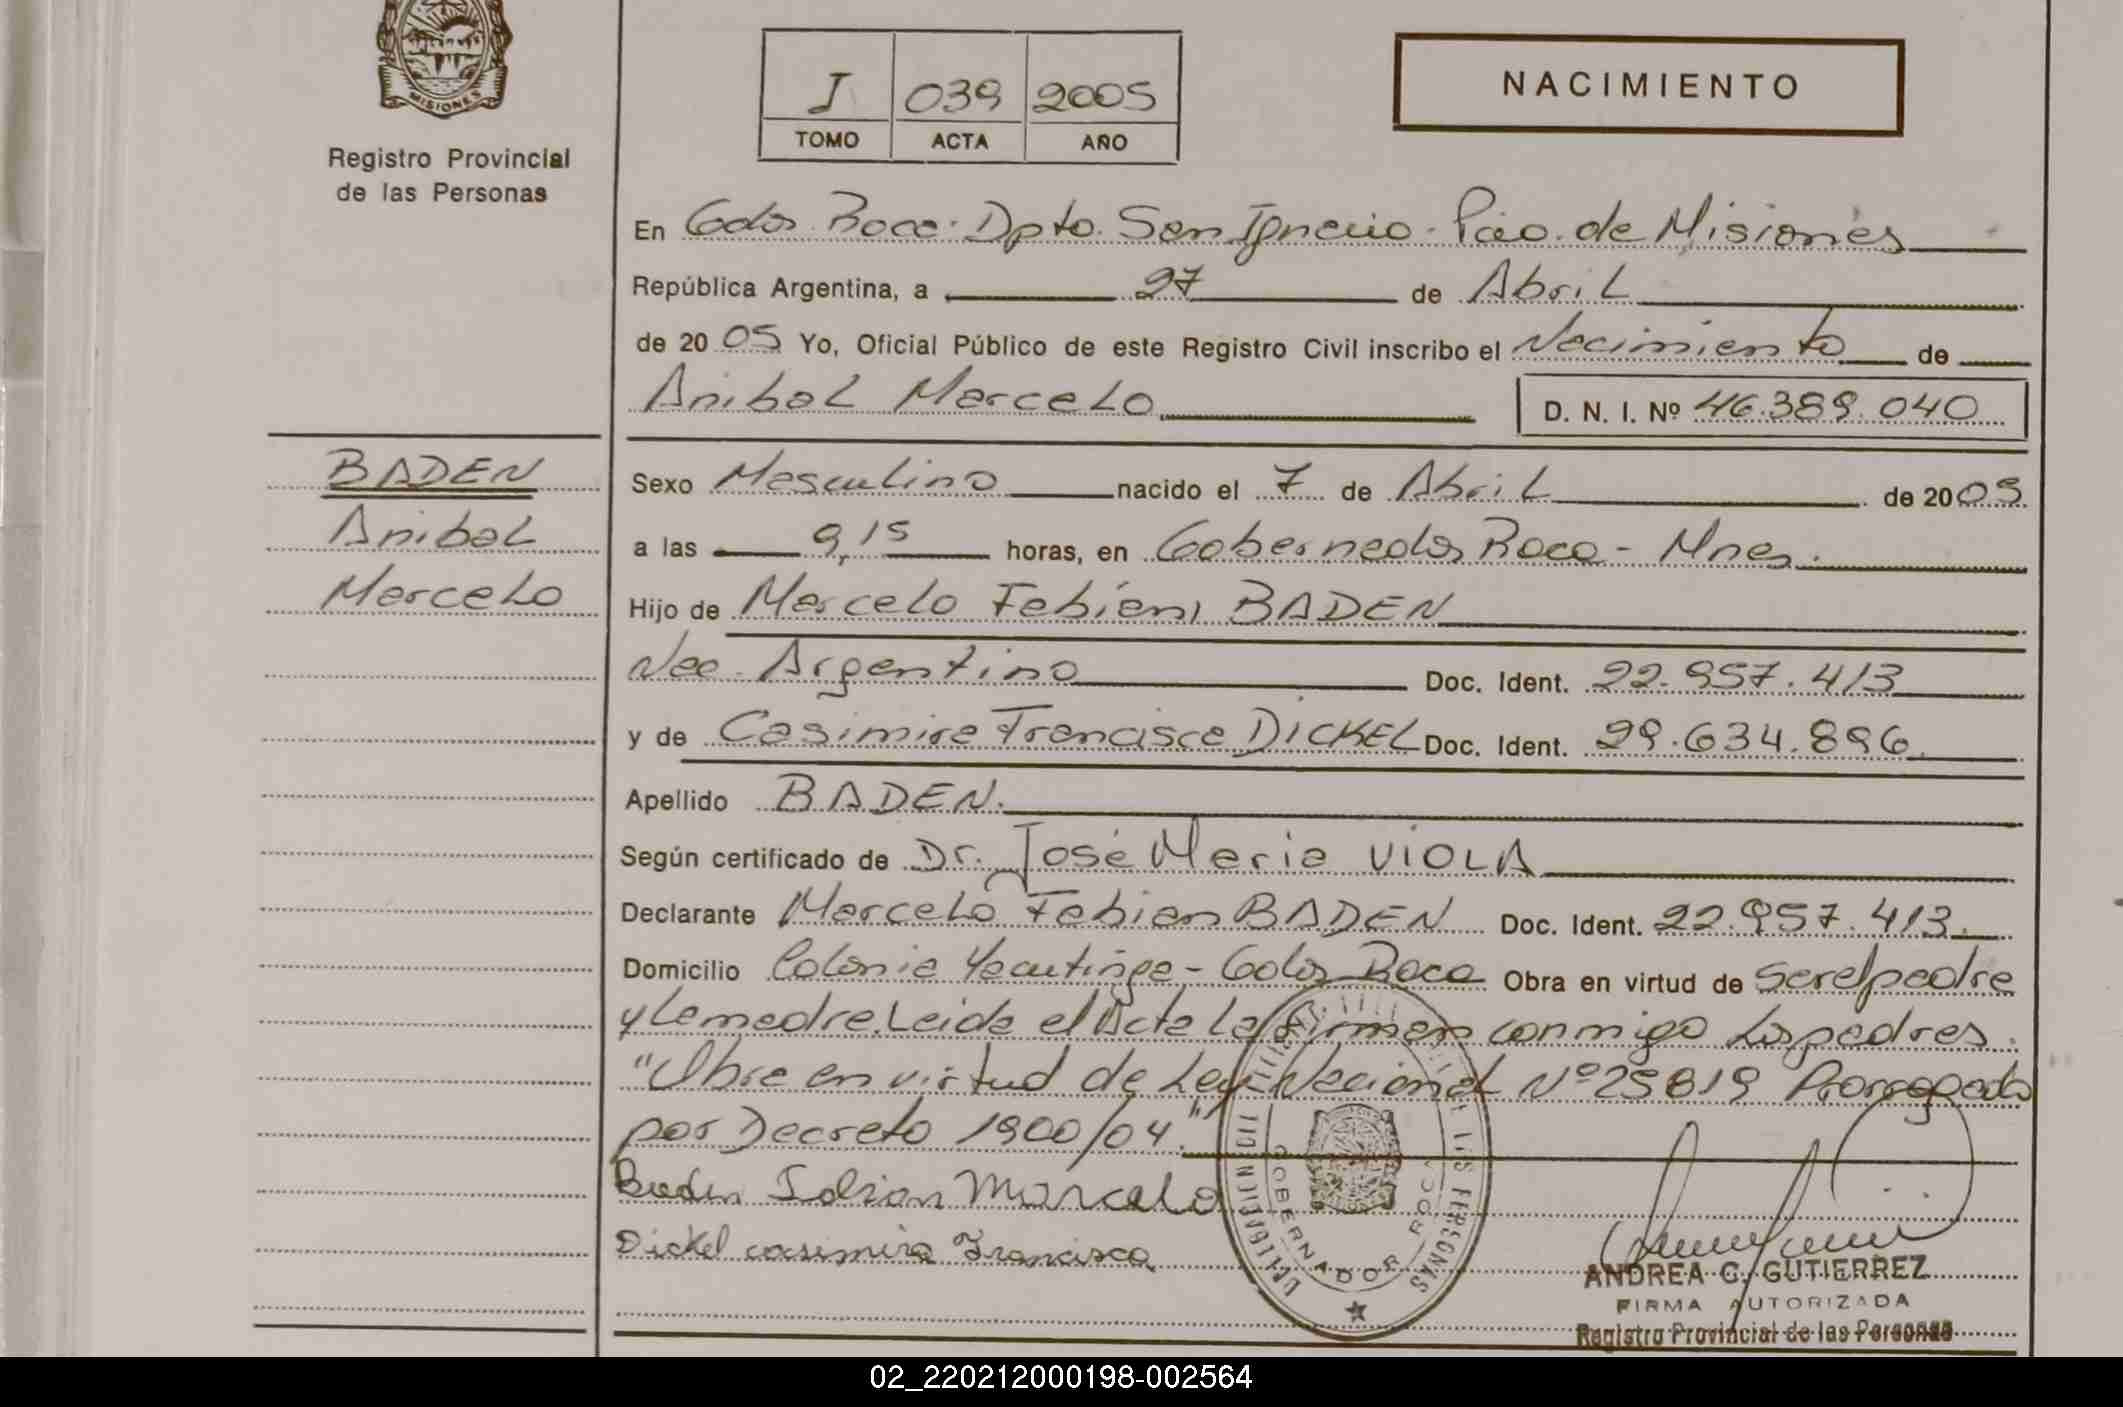 MISIONES
Registro Provincial
de las Personas
I 039 2005
TOMO ACTA AÑO
NACIMIENTO
En Gdor. Roca. Dpto. San Ignacio. Pcia. de Misiones
República Argentina, a 27 de Abril
de 2005 Yo, Oficial Público de este Registro Civil inscribo el Nacimiento de
Anibal Marcelo D. N. I. Nº 46.389.040
BADEN
Anibal
Marcelo
Sexo Masculino nacido el 7 de Abril de 2005
a las 9,15 horas, en Gobernador Roca - Mnes.
Hijo de Marcelo Fabian BADEN
Nac. Argentino Doc. Ident. 22.957.413
y de Casimira Francisca DICKEL Doc. Ident. 29.634.896
Apellido BADEN.
Según certificado de Dr. José Maria VIOLA
Declarante Marcelo Fabian BADEN Doc. Ident. 22.957.413
Domicilio Colonia Yacutinga - Gdor Roca Obra en virtud de ser el padre
y la madre. Leida el Acta la firman conmigo los padres.
"Obra en virtud de Ley Nacional Nº 25819 Prorrogada
por Decreto 1900/04."
Baden Fabian Marcelo
Dickel casimira Francisca
DE LAS PERSONAS
GOBERNADOR ROCA
ANDREA C. GUTIERREZ
FIRMA AUTORIZADA
Registro Provincial de las Personas
02_220212000198-002564